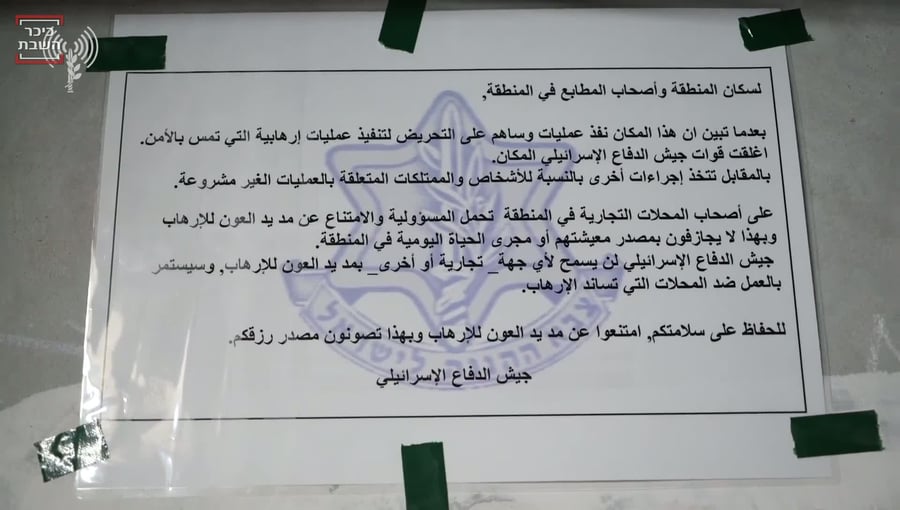 כיכר
השבת
لسكان المنطقة وأصحاب المطابع في المنطقة,
بعدما تبين ان هذا المكان نفذ عمليات وساهم على التحريض لتنفيذ عمليات إرهابية التي تمس بالأمن.
اغلقت قوات جيش الدفاع الإسرائيلي المكان.
بالمقابل تتخذ إجراءات أخرى بالنسبة للأشخاص والممتلكات المتعلقة بالعمليات الغير مشروعة.
على أصحاب المحلات التجارية في المنطقة تحمل المسؤولية والامتناع عن مد يد العون للإرهاب
وبهذا لا يجازفون بمصدر معيشتهم أو مجرى الحياة اليومية في المنطقة.
جيش الدفاع الإسرائيلي لن يسمح لأي جهة_ تجارية أو أخرى_ بمد يد العون للإرهاب, وسيستمر
بالعمل ضد المحلات التي تساند الإرهاب.
للحفاظ على سلامتكم, امتنعوا عن مد يد العون للإرهاب وبهذا تصونون مصدر رزقكم.
جيش الدفاع الإسرائيلي
צבא ההגנה לישראל